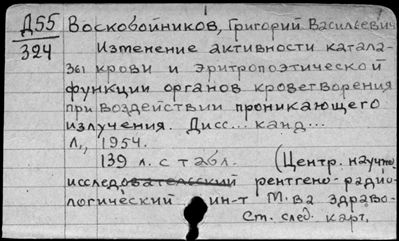 Д55 Воскобойников, Григорий Васильевич
324 Изменение активности катала-
зы крови и эритропоэтической
функции органов кроветворения
при воздействии проникающего
излучения. Дисс... канд...
Л., 1954.
139 л. с табл. (Центр. научно
исследовательский рентгено-радио-
логический ин-т М-ва здраво-
Ст. след. карт.